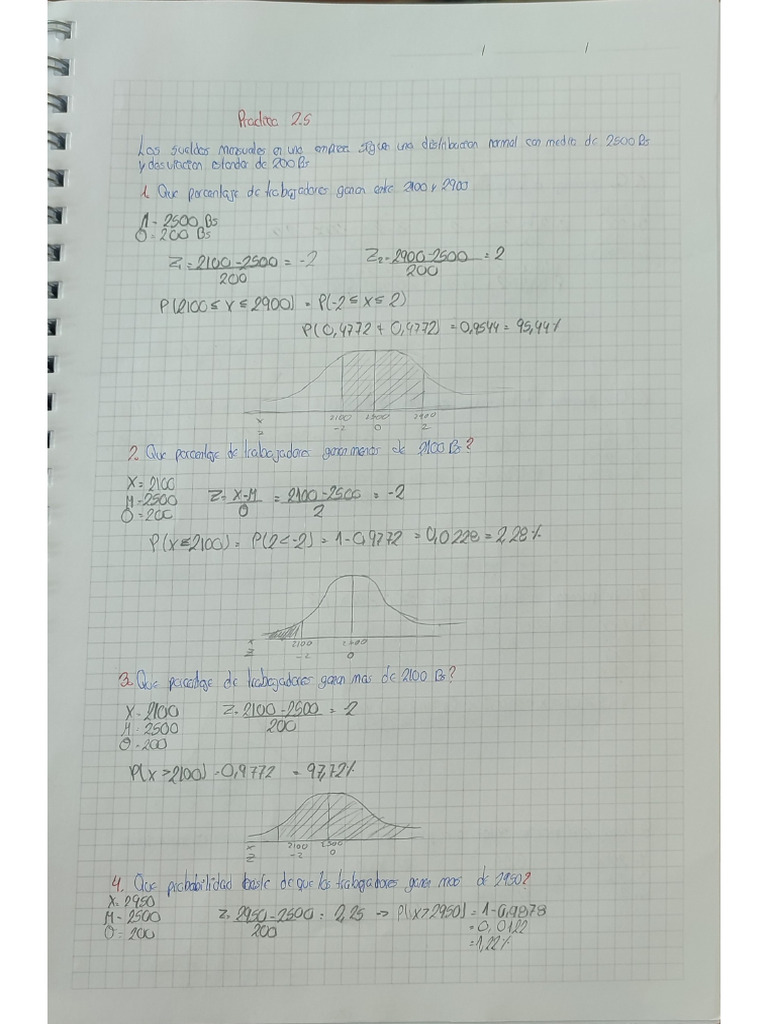 Practica 2.5
Los sueldos mensuales en una empresa sigue una distribucion normal con media de 2500 Bs
y desviacion estandar de 200 Bs
1. Que porcentaje de trabajadores ganan entre 2100 y 2900
M = 2500 Bs
O = 200 Bs
Z1 = 2100 - 2500 / 200 = -2   Z2 = 2900 - 2500 / 200 = 2
P(2100 ≤ x ≤ 2900) = P(-2 ≤ x ≤ 2)
P(0,4772 + 0,4772) = 0,9544 = 95,44%
x 2100 2500 2900
z -2 0 2
2. Que porcentaje de trabajadores ganan menos de 2100 Bs?
X = 2100
M = 2500
O = 200
Z = X - M / O = 2100 - 2500 / 2 = -2
P(x ≤ 2100) = P(2 < -2) = 1 - 0,9772 = 0,0228 = 2,28%
x 2100 2500
z -2 0
3. Que porcentaje de trabajadores ganan mas de 2100 Bs?
X = 2100
M = 2500
O = 200
Z = 2100 - 2500 / 200 = -2
P(x > 2100) = 0,9772 = 97,72%
x 2100 2500
z -2 0
4. Que probabilidad existe de que los trabajadores ganen mas de 2950?
X = 2950
M = 2500
O = 200
Z = 2950 - 2500 / 200 = 2,25 → P(x > 2950) = 1 - 0,9878
= 0,0122
= 1,22%